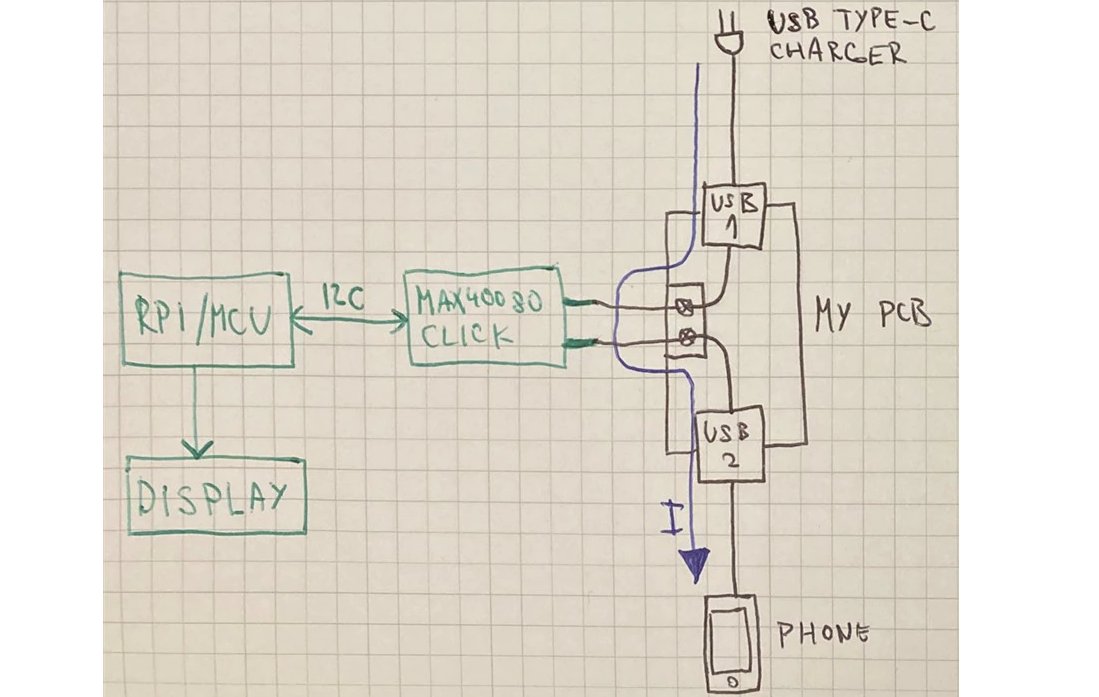 USB TYPE-C
CHARGER
USB
1
I2C
RPI/MCU
MAX40080
CLICK
MY PCB
USB
2
DISPLAY
I
PHONE